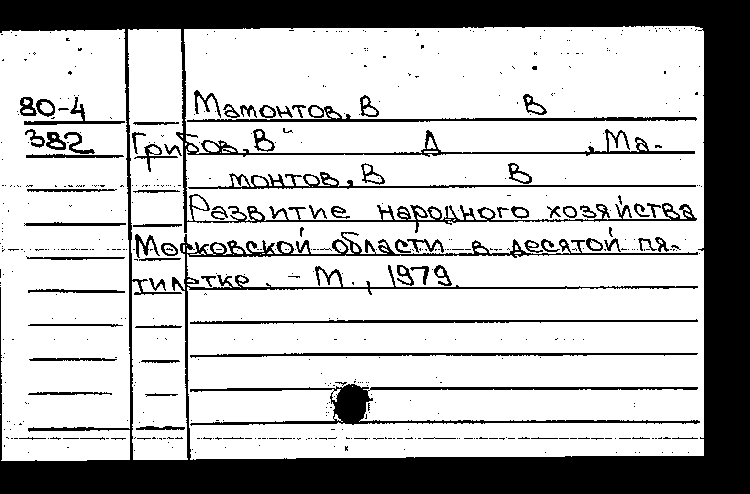 80-4 Мамонтов, В В
382 Грибов, В Д , Ма-
монтов, В В
Развитие народного хозяйства
Московской области в десятой пя-
тилетке. - М., 1979.